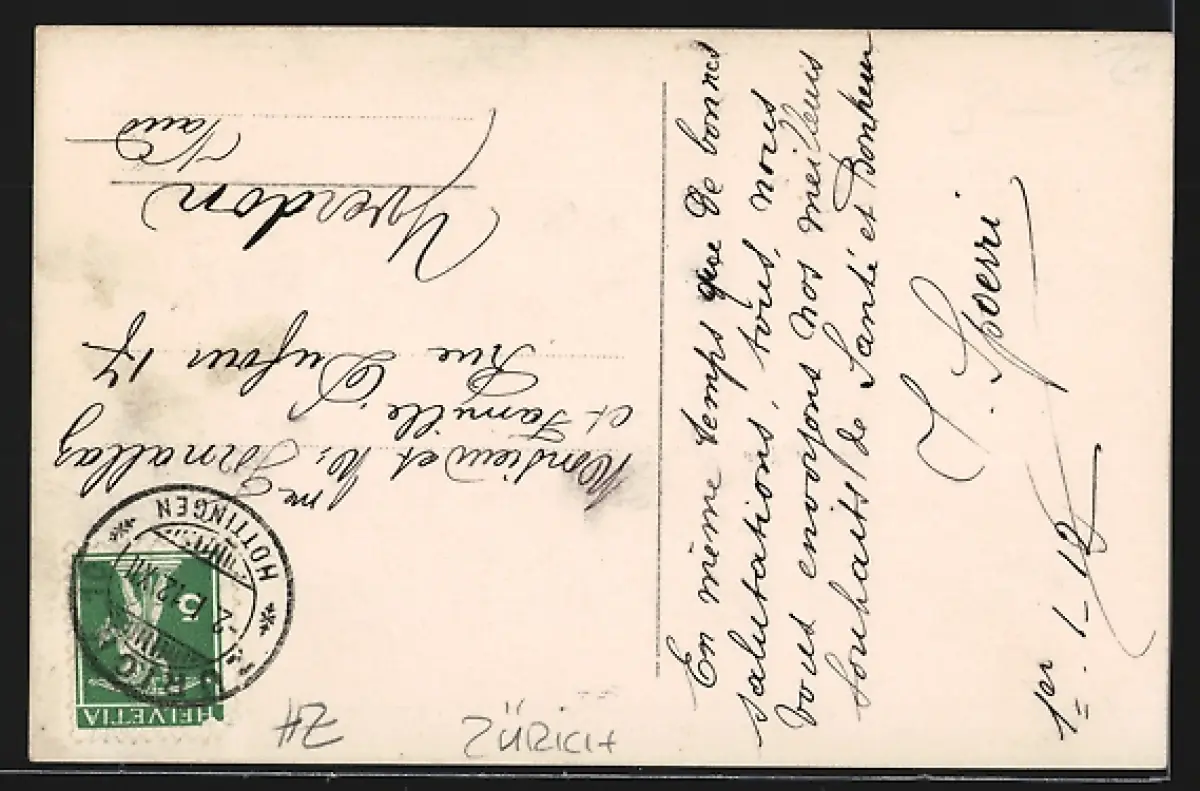 En même temps que de bonnes
salutations, tous, nous
vous envoyons nos meilleurs
souhaits de Santé et Bonheur
J. Spoerri
1er. 1-12
Monsieur et Me
et Famille
Rue Dufour 17
Yverdon
Vaud
HELVETIA
5
HOTTINGEN
ZÜRICH
ZH